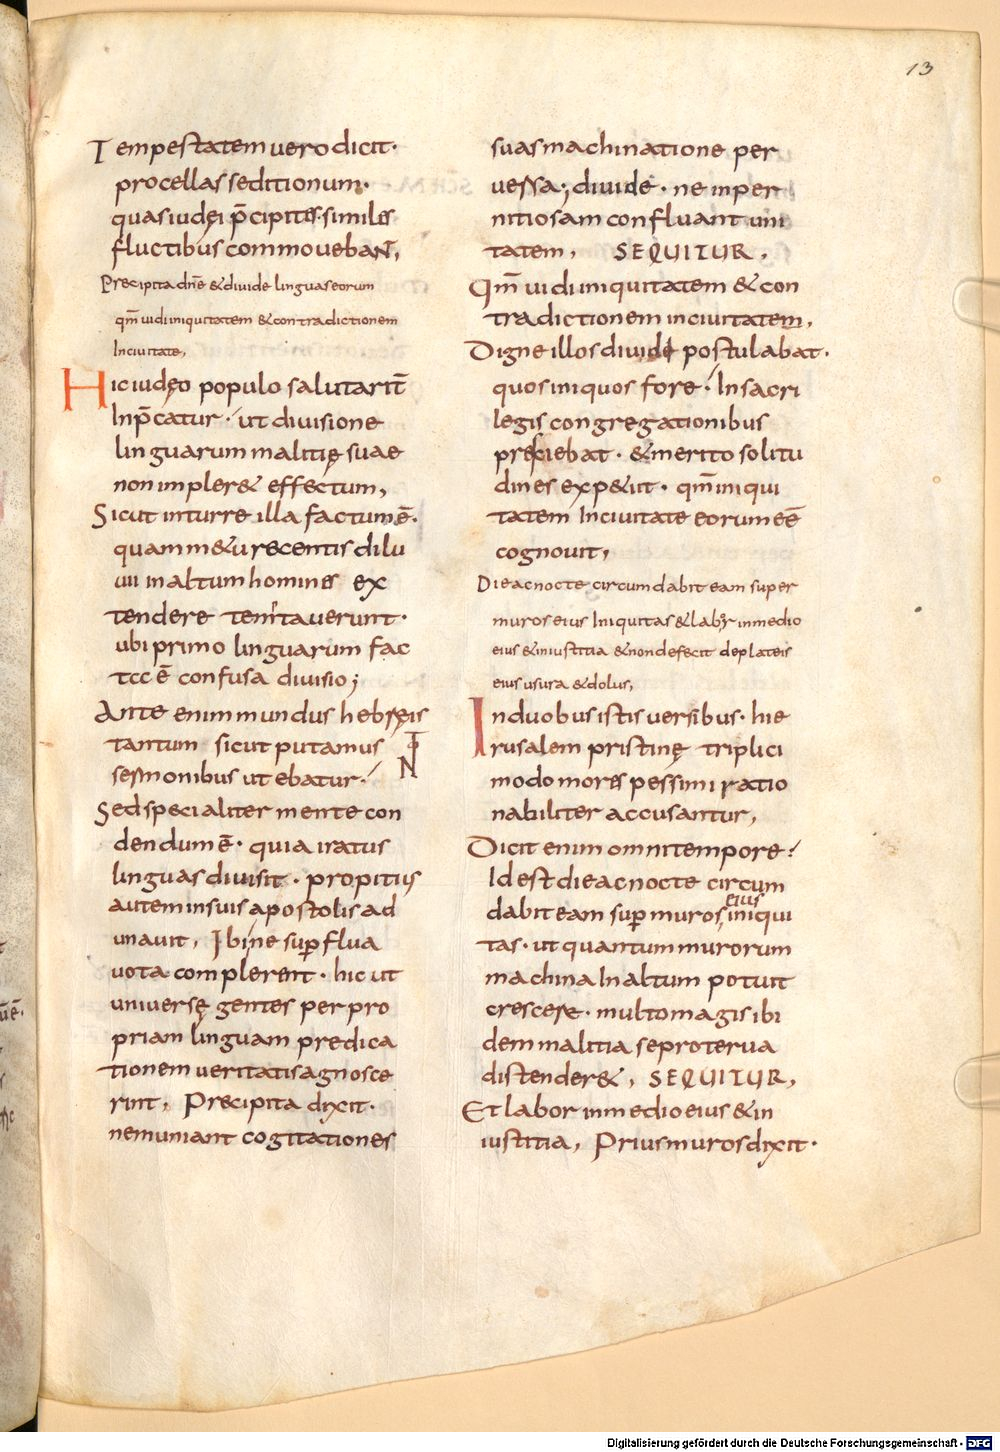 13
Tempestatem uero dicit·
procellas seditionum·
quas iudęi p̄cipites· similes
fluctibus commouebaNT,
Precipita dn̄e & diuide linguas eorum
qm̄ uidi iniquitatem & contradictionem
In ciuitate,
Hic iudęo populo salutarit̄
Inp̄catur· ut diuisione
linguarum malitię suae
non impler& effectum,
Sicut in turre illa factum ē·
quam m&u recentis dilu
uii in altum homines ex
tendere temtauerunt·
ubi primo linguarum fac
ta ē confusa diuisio;
Ante enim mundus hebręis
tantum sicut putamus
sermonibus utebatur·
Sed specialiter mente con
dendum ē· quia iratus
linguas diuisit· propitius
autem in suis apostolis ad
unauit, Ibi ne supflua
uota complerent· hic ut
uniuersę gentes per pro
priam linguam predica
tionem ueritatis agnosce
rint, Precipita dixit·
ne muniant cogitationes
suas machinatione per
uersa; diuide· ne inper
nitiosam confluant uni
tatem, SEQUITUR,
Qm̄ uidi iniquitatem & con
tradictionem in ciuitatem,
Digne illos diuidi postulabat·
quos iniquos fore· In sacri
legis congregationibus
presciebat· & merito solitu
dines exp&iit· qm̄ iniqui
tatem In ciuitate eorum eē
cognouit,
Die ac nocte circumdabit eam super
muros eius Iniquitas & labor in medio
eius & iniustitia & non defecit de plateis
eius usura & dolus,
In duobus istis uersibus· hie
rusalem pristinę triplici
modo mores pessimi ratio
nabiliter accusantur,
Dicit enim omni tempore·
Id est die ac nocte circum
dabit eam sup muros eius iniqui
tas· ut quantum murorum
machina In altum potuit
crescere· multo magis ibi
dem malitia se proterua
distender&, SEQUITUR,
Et labor in medio eius & in
iustitia, Prius muros dixit·
Digitalisierung gefördert durch die Deutsche Forschungsgemeinschaft - DFG